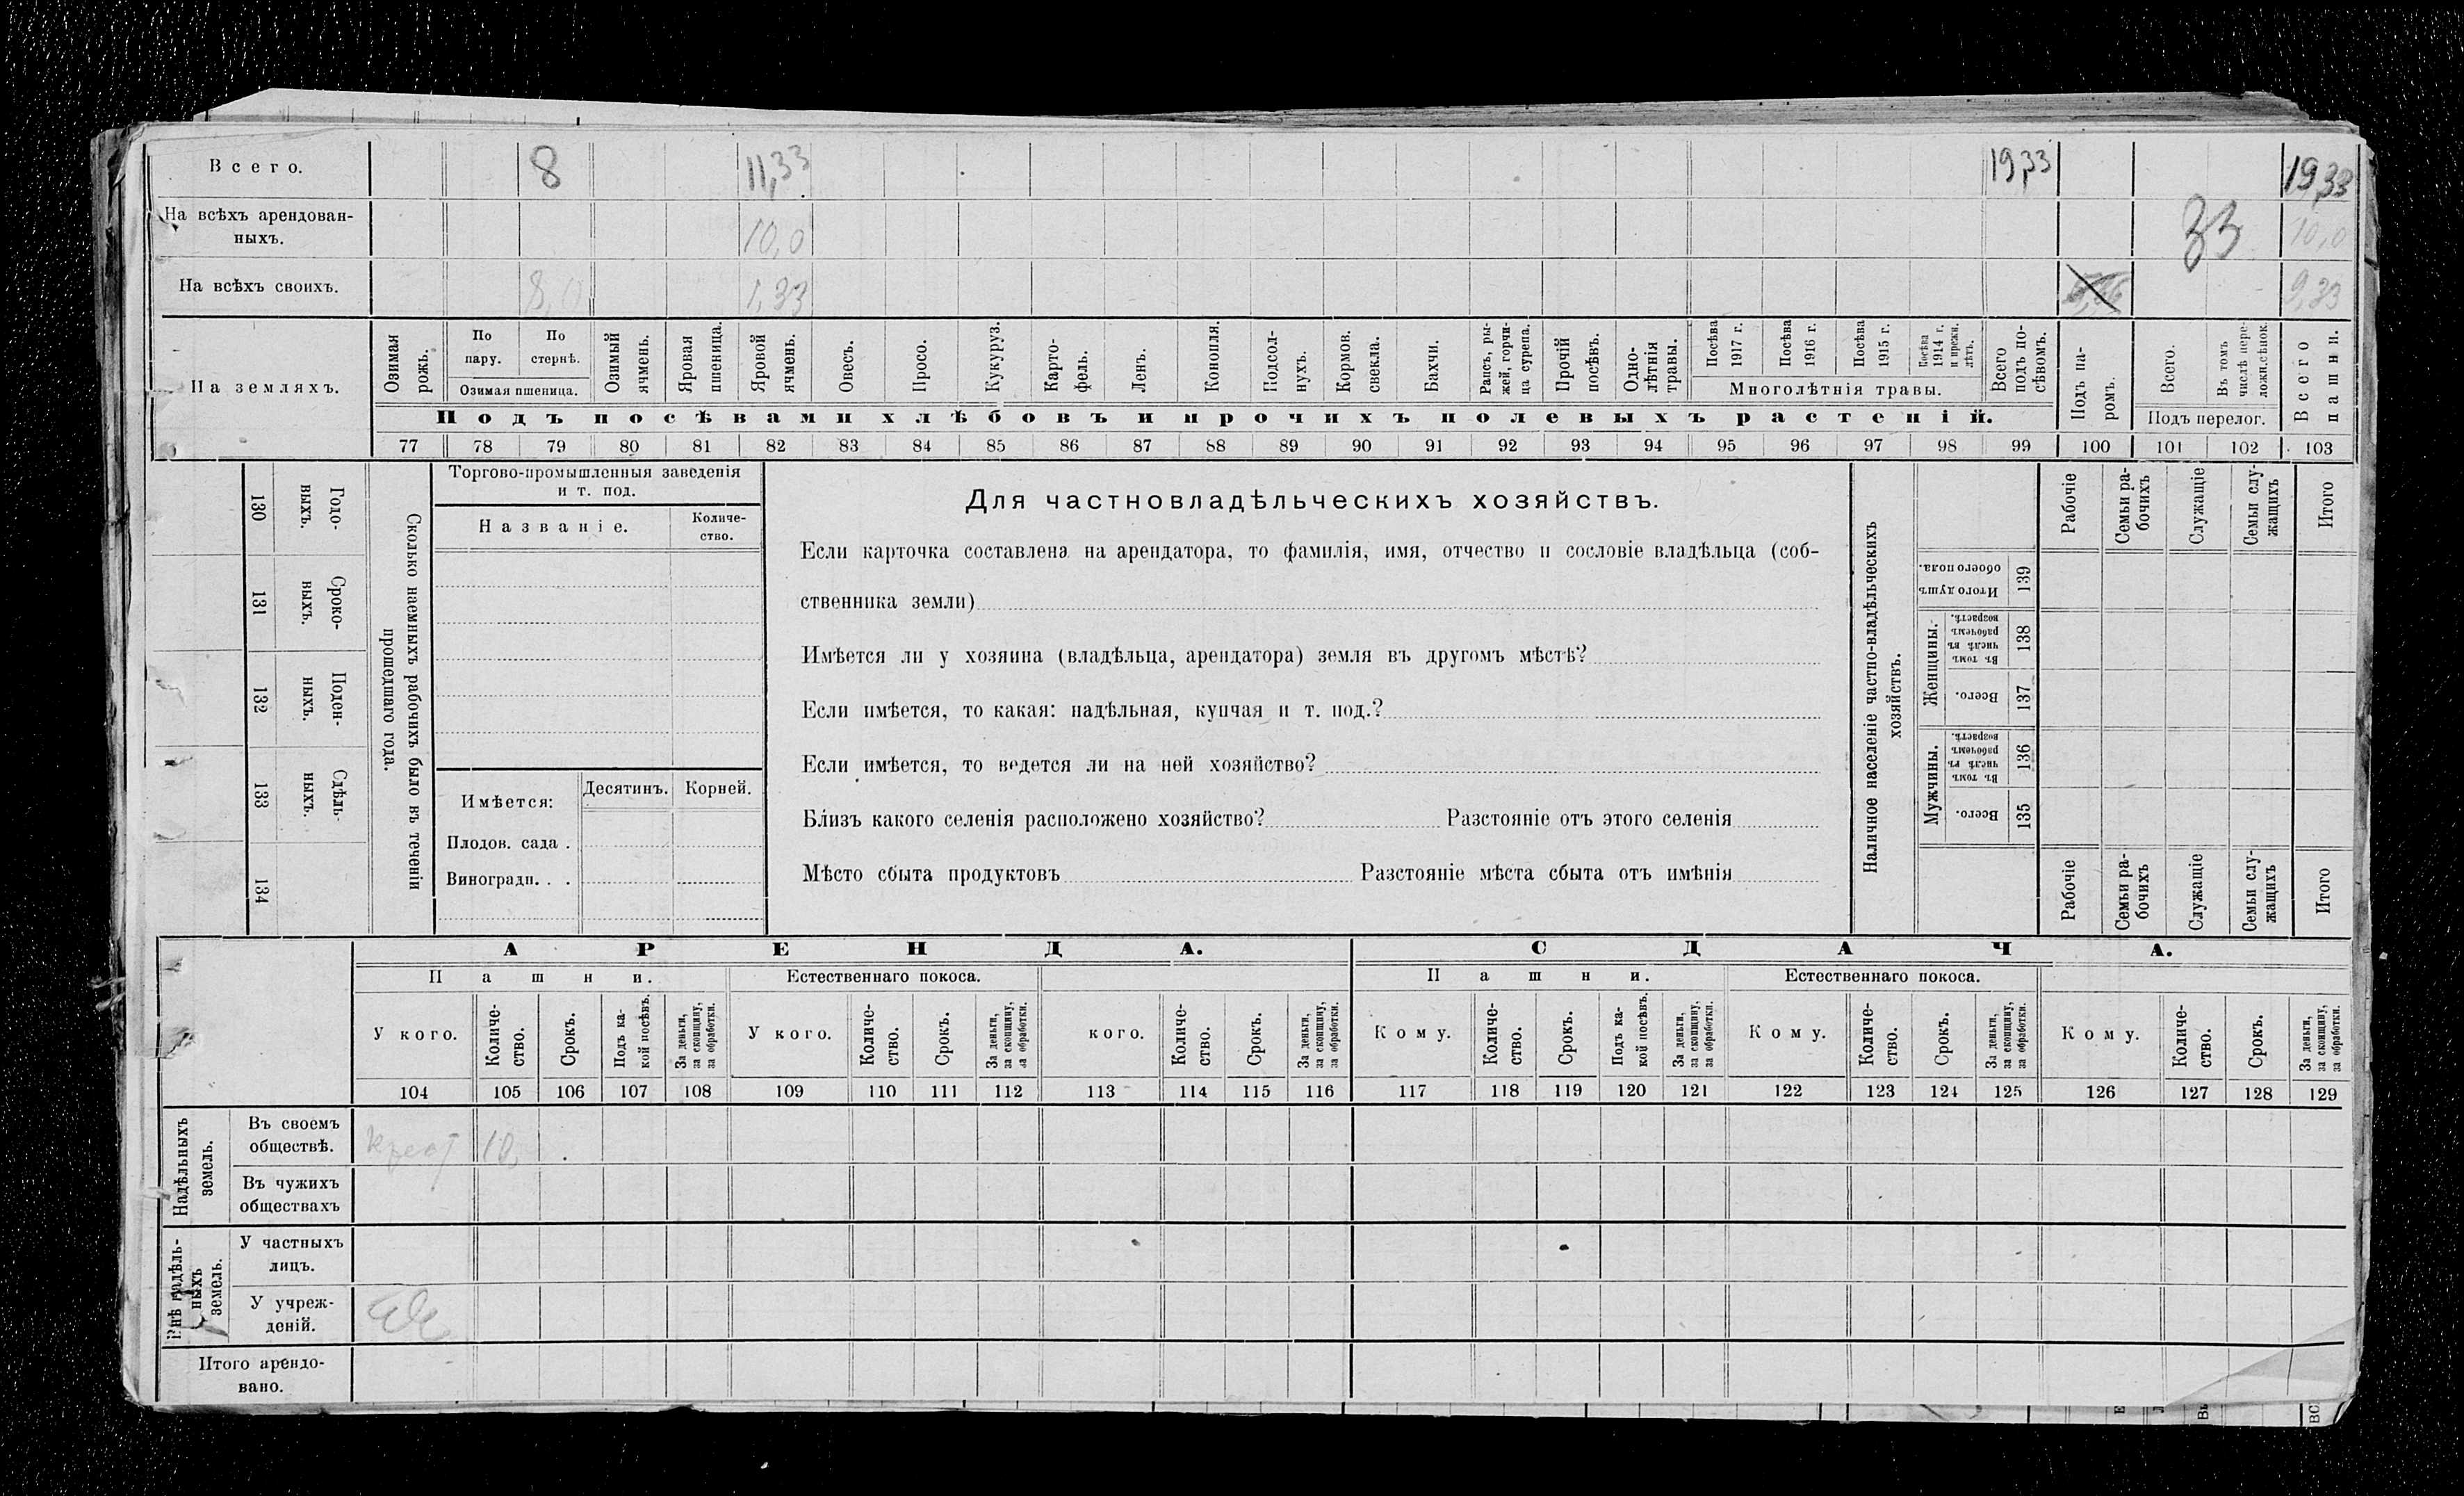 Всего. 8 11,33 19,33 19,33
На всѣхъ арендован-
ныхъ. 10,0 33 10,0
На всѣхъ своихъ. 8,0 1,33 9,33
На земляхъ.
Озимая рожь.
По пару.
По стернѣ.
Озимая пшеница.
Озимый ячмень.
Яровая пшеница.
Яровой ячмень.
Овесъ.
Просо.
Кукуруз.
Карто-
фель.
Ленъ.
Конопля.
Подсол-
нухъ.
Кормов. свекла.
Бахчи.
Рапсъ, ры-
жей, горчи-
ца сурепа.
Прочій посѣвъ.
Одно-
лѣтнія травы.
Посѣва 1917 г.
Посѣва 1916 г.
Посѣва 1915 г.
Посѣва 1914 г. и прежн. лѣтъ.
Многолѣтнія травы.
Всего подъ по-
сѣвомъ.
Подъ па-
ромъ.
Всего.
Въ томъ числѣ пере-
ложн.сѣнок.
Подъ перелог.
Всего пашни.
Подъ посѣвами хлѣбовъ и прочихъ полевыхъ растеній.
77 78 79 80 81 82 83 84 85 86 87 88 89 90 91 92 93 94 95 96 97 98 99 100 101 102 103
130 Годо-
ныхъ.
131 Сроко-
ныхъ.
132 Поден-
ныхъ.
133 Сдѣль-
ныхъ.
134
Сколько наемныхъ рабочихъ было въ теченіи
прошедшаго года.
Торгово-промышленныя заведенія
и т. под.
Названіе.
Количе-
ство.
Имѣется: Десятинъ. Корней.
Плодов. сада .
Виноградн. . .
Для частновладѣльческихъ хозяйствъ.
Если карточка составлена на арендатора, то фамилія, имя, отчество и сословіе владѣльца (соб-
ственника земли)
Имѣется ли у хозяина (владѣльца, арендатора) земля въ другомъ мѣстѣ?
Если имѣется, то какая: надѣльная, купчая и т. под.?
Если имѣется, то ведется ли на ней хозяйство?
Близъ какого селенія расположено хозяйство? Разстояніе отъ этого селенія
Мѣсто сбыта продуктовъ Разстояніе мѣста сбыта отъ имѣнія
Наличное населеніе частно-владѣльческихъ
хозяйствъ.
Рабочіе
Семьи ра-
бочихъ
Служащіе
Семьи слу-
жащихъ
Итого
Итого душъ обоего пола. 139
Женщины.
Въ томъ числѣ въ рабочемъ возрастѣ. 138
Всего. 137
Мужчины.
Въ томъ числѣ въ рабочемъ возрастѣ. 136
Всего. 135
Рабочіе
Семьи ра-
бочихъ
Служащіе
Семьи слу-
жащихъ
Итого
АРЕНДА. СДАЧА.
Пашни. Естественнаго покоса. Пашни. Естественнаго покоса.
У кого.
Количе-
ство.
Срокъ.
Подъ ка-
кой посѣвъ.
За деньги,
за скопщину,
за обработки.
У кого.
Количе-
ство.
Срокъ.
За деньги,
за скопщину,
за обработки.
кого.
Количе-
ство.
Срокъ.
За деньги,
за скопщину,
за обработки.
Кому.
Количе-
ство.
Срокъ.
Подъ ка-
кой посѣвъ.
За деньги,
за скопщину,
за обработки.
Кому.
Количе-
ство.
Срокъ.
За деньги,
за скопщину,
за обработки.
Кому.
Количе-
ство.
Срокъ.
За деньги,
за скопщину,
за обработки.
104 105 106 107 108 109 110 111 112 113 114 115 116 117 118 119 120 121 122 123 124 125 126 127 128 129
Надѣльныхъ
земель.
Въ своемъ
обществѣ. Крест 10,
Въ чужихъ
обществахъ
Внѣ надѣль-
ныхъ
земель.
У частныхъ
лицъ.
У учреж-
деній.
Итого арендо-
вано.